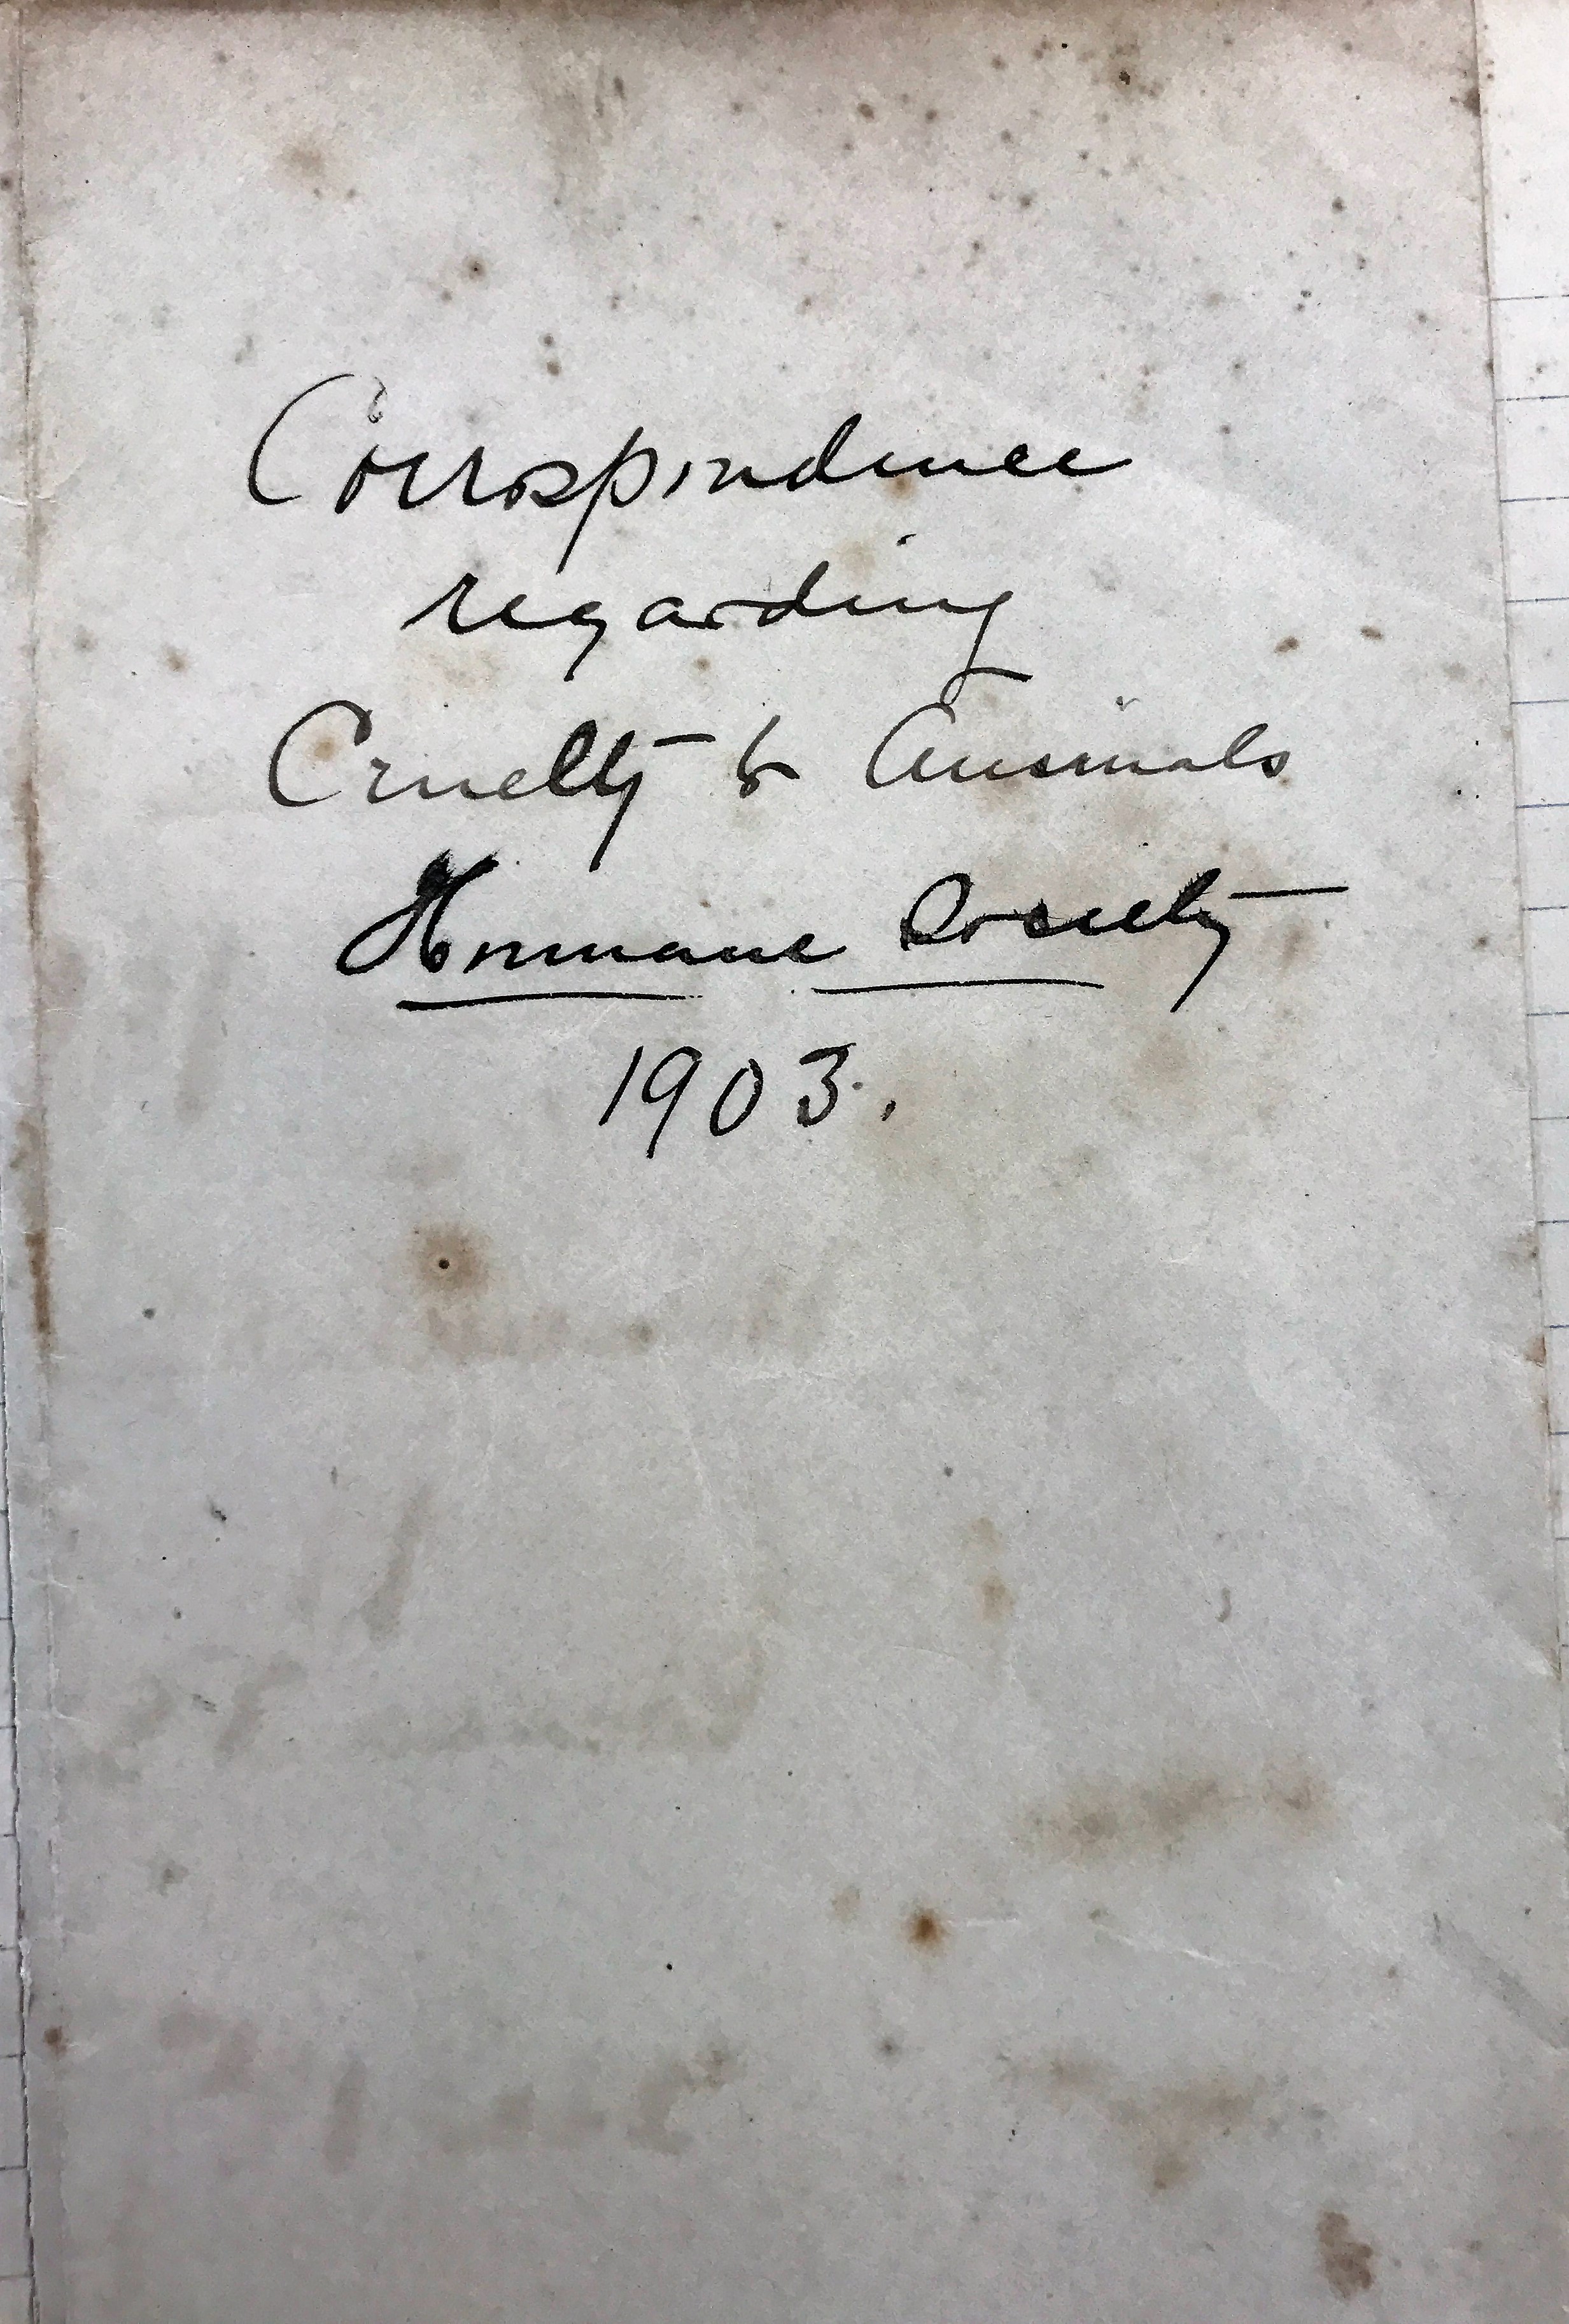 Correspondence
regarding
Cruelty to Animals
Humane Society
1903.